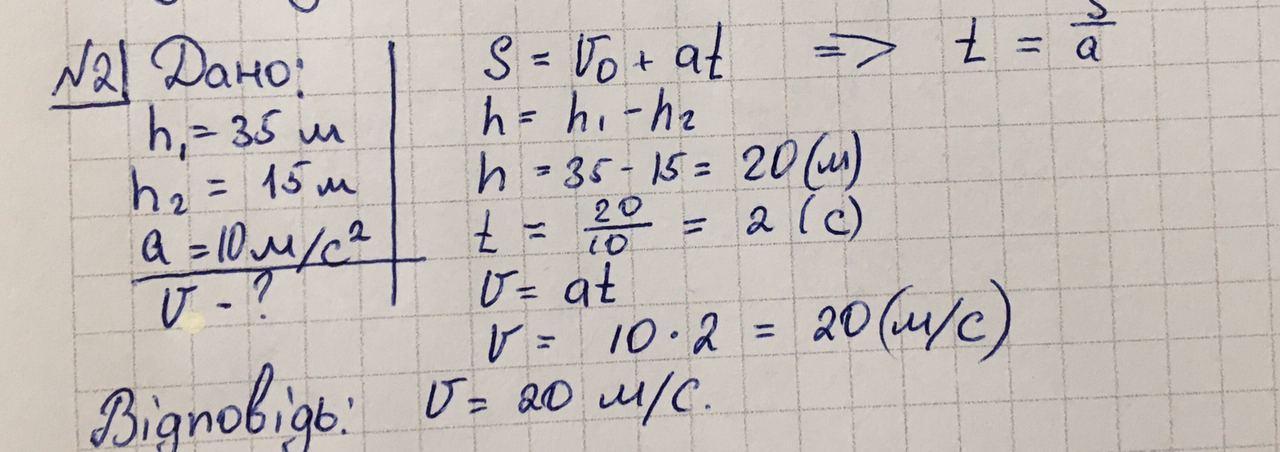 №2 Дано:
h₁ = 35 м
h₂ = 15 м
a = 10 м/с²
v - ?
S = v₀ + at => t = S/a
h = h₁ - h₂
h = 35 - 15 = 20 (м)
t = 20/10 = 2 (с)
v = at
v = 10 · 2 = 20 (м/с)
Відповідь: v = 20 м/с.